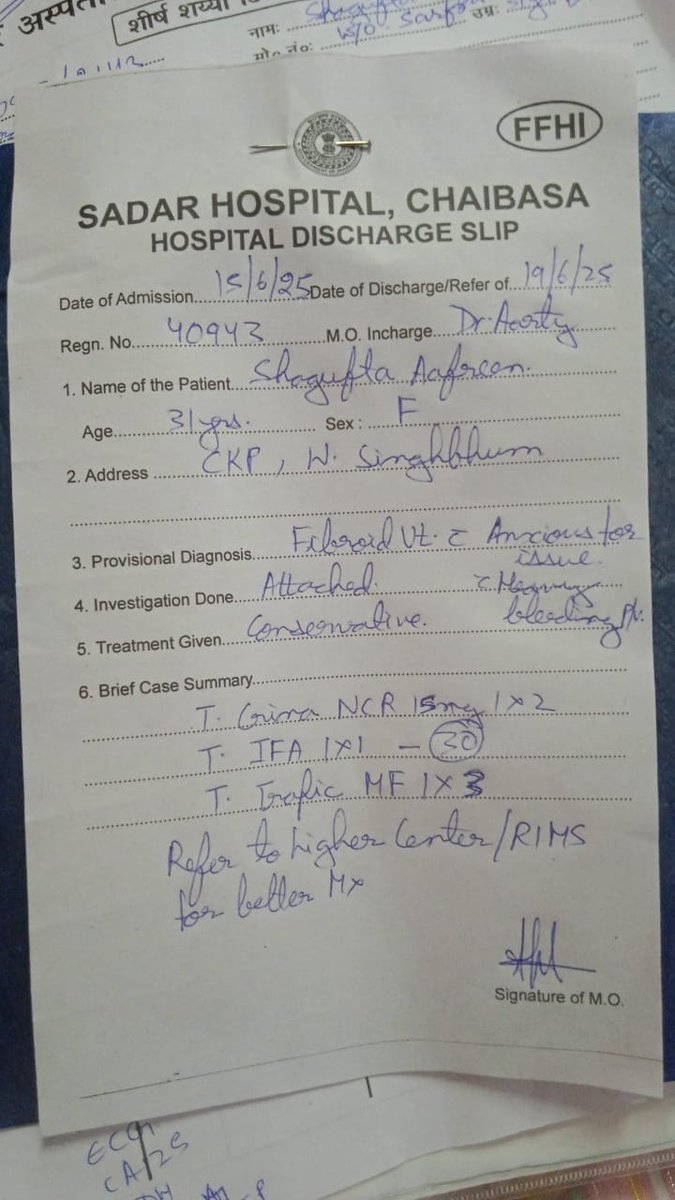 अस्पता
शीर्ष शय्या
नामः Shagufta
W/O. Sarf
उम्रः
मो० नं०:
FFHI
SADAR HOSPITAL, CHAIBASA
HOSPITAL DISCHARGE SLIP
Date of Admission 15/6/25 Date of Discharge/Refer of 19/6/25
Regn. No. 40943 M.O. Incharge Dr. Aarty
1. Name of the Patient Shagufta Aafreen.
Age 31yrs. Sex : F
2. Address CKP, W. Singhbhum
3. Provisional Diagnosis Fibroid Ut. c̄ Anxious for
issue.
4. Investigation Done Attached. c̄ Heavy
5. Treatment Given Conservative. bleeding P/V.
6. Brief Case Summary
T. Crina NCR 15mg 1x2
T. IFA 1x1 – 30
T. Trafic MF 1x3
Refer to higher Center/RIMS
for better Mx
Signature of M.O.
ECG
CA125